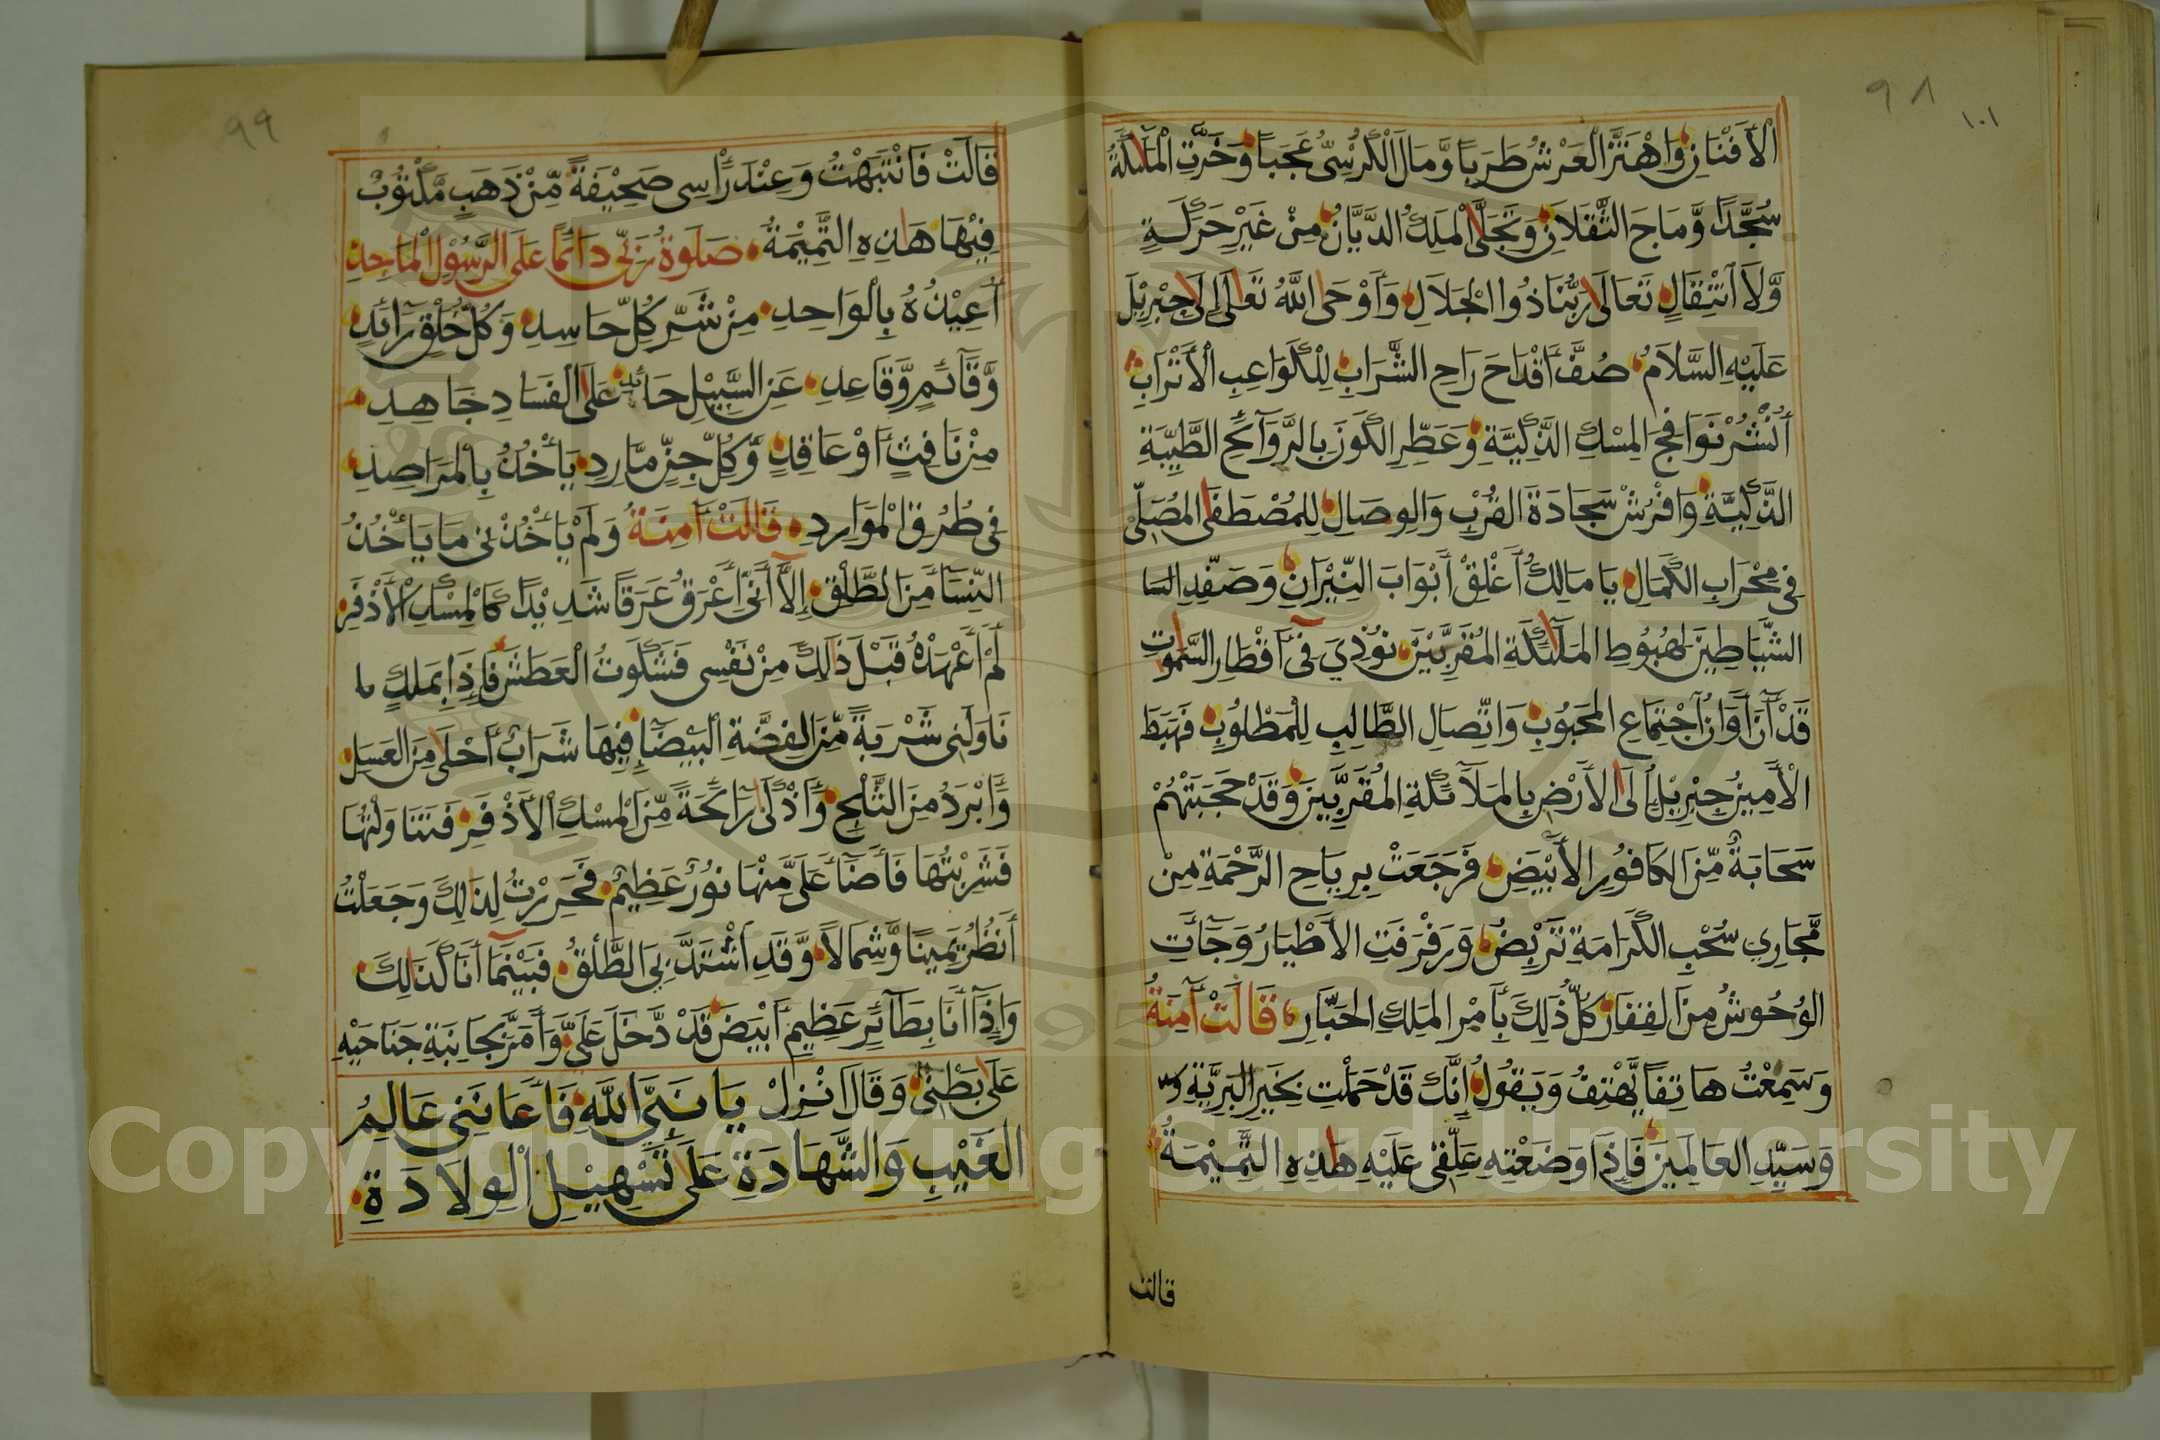 ٩٨
١٠١
الْأَفْنَانِ وَاهْتَزَّ الْعَرْشُ طَرَبًا وَّمَالَ الْكُرْسِيُّ عَجَبًا وَخَرَّتِ الْمَلٰئِكَةُ
سُجَّدًا وَّمَاجَ الثَّقَلَانِ وَتَجَلَّى الْمَلِكُ الدَّيَّانُ مِنْ غَيْرِ حَرَكَةٍ
وَّلَا انْتِقَالٍ تَعَالَى رَبُّنَا ذُوا الْجَلَالِ وَأَوْحَى اللّٰهُ تَعَالَى إِلَى جِبْرِيْلَ
عَلَيْهِ السَّلَامُ صُفَّ أَقْدَاحَ رَاحِ الشَّرَابِ لِلْكَوَاعِبِ الْأَتْرَابِ
أُنْشُرْ نَوَافِجَ الْمِسْكِ الذَّكِيَّةِ وَعَطِّرِ الْكَوْنَ بِالرَّوَآئِحِ الطَّيِّبَةِ
الذَّكِيَّةِ وَافْرُشْ سَجَادَةَ الْقُرْبِ وَالْوِصَالِ لِلْمُصْطَفَى الْمُصَلِّيْ
فِي مِحْرَابِ الْكَمَالِ يَا مَالِكُ أَغْلِقْ أَبْوَابَ النِّيْرَانِ وَصَفِّدِ السا
الشَّيَاطِيْنَ لِهُبُوْطِ الْمَلٰئِكَةِ الْمُقَرَّبِيْنَ نُوْدِيَ فِيْ أَقْطَارِ السَّمٰوٰتِ
قَدْ آنَ أَوَانُ اجْتِمَاعِ الْمَحْبُوْبِ وَاتِّصَالِ الطَّالِبِ لِلْمَطْلُوْبِ فَهَبَطَ
الْأَمِيْنُ جِبْرِيْلُ إِلَى الْأَرْضِ بِالْمَلَآئِكَةِ الْمُقَرَّبِيْنَ وَقَدْ حَجَبَتْهُمْ
سَحَابَةٌ مِّنَ الْكَافُوْرِ الْأَبْيَضِ فَرَجَعَتْ بِرِيَاحِ الرَّحْمَةِ مِنْ
مَّجَارِي سُحْبِ الْكَرَامَةِ تَرْبِضُ وَرَفْرَفَتِ الْأَطْيَارُ وَجَآءَتِ
الْوُحُوْشُ مِنَ الْقِفَارِ كُلُّ ذٰلِكَ بِأَمْرِ الْمَلِكِ الْجَبَّارِ قَالَتْ آمِنَةُ
وَسَمِعْتُ هَاتِفًا يَّهْتِفُ وَيَقُوْلُ إِنَّكِ قَدْ حَمَلْتِ بِخَيْرِ الْبَرِيَّةِ
وَسَيِّدِ الْعَالَمِيْنَ فَإِذَا وَضَعْتِهِ عَلِّقِيْ عَلَيْهِ هٰذِهِ التَّمِيْمَةَ
قالت
٩٩
قَالَتْ فَانْتَبَهْتُ وَعِنْدَ رَأْسِي صَحِيْفَةٌ مِّنْ ذَهَبٍ مَّكْتُوْبٌ
فِيْهَا هٰذِهِ التَّمِيْمَةُ صَلٰوةُ رَبِّيْ دَائِمًا عَلَى الرَّسُوْلِ الْمَاجِدِ
أُعِيْذُهُ بِالْوَاحِدِ مِنْ شَرِّ كُلِّ حَاسِدِ وَكُلِّ خَلْقٍ رَآئِدِ
وَّقَآئِمٍ وَّقَاعِدِ عَنِ السَّبِيْلِ حَائِدِ عَلَى الْفَسَادِ جَاهِدِ
مِنْ نَافِثٍ أَوْ عَاقِدِ وَّكُلِّ جِنٍّ مَّارِدِ يَأْخُذُ بِالْمَرَاصِدِ
فِي طُرُقِ الْمَوَارِدِ قَالَتْ آمِنَةُ وَلَمْ يَأْخُذْنِي مَا يَأْخُذُ
النِّسَآءَ مِنَ الطَّلْقِ إِلَّآ أَنِّيْ أَعْرَقُ عَرَقًا شَدِيْدًا كَالْمِسْكِ الْأَذْفَرِ
لَمْ أَعْهَدْهُ قَبْلَ ذٰلِكَ مِنْ نَفْسِي فَشَكَوْتُ الْعَطَشَ فَإِذَا بِمَلَكٍ
نَاوَلَنِي شَرْبَةً مِّنَ الْفِضَّةِ الْبَيْضَآءِ فِيْهَا شَرَابٌ أَحْلَى مِنَ الْعَسَلِ
وَأَبْرَدُ مِنَ الثَّلْجِ وَأَذْكَى رَائِحَةً مِّنَ الْمِسْكِ الْأَذْفَرِ فَتَنَاوَلْتُهَا
فَشَرِبْتُهَا فَأَضَآءَ عَلَيَّ مِنْهَا نُوْرٌ عَظِيْمٌ فَحَيِرْتُ لِذٰلِكَ وَجَعَلْتُ
أَنْظُرُ يَمِيْنًا وَّشِمَالًا وَّقَدِ اشْتَدَّ بِيَ الطَّلْقُ فَبَيْنَمَآ أَنَا كَذٰلِكَ
وَإِذَآ أَنَا بِطَآئِرٍ عَظِيْمٍ أَبْيَضَ قَدْ دَّخَلَ عَلَيَّ وَأَمَرَّ بِجَانِبَةِ جَنَاحَيْهِ
عَلَى بَطْنِيْ وَقَالَ انْزِلْ يَا نَبِيَّ اللّٰهِ فَأَعَانَنِي عَالِمُ
الْغَيْبِ وَالشَّهَادَةِ عَلَى تَسْهِيْلِ الْوِلَادَةِ
Copyright © King Saud University
1957